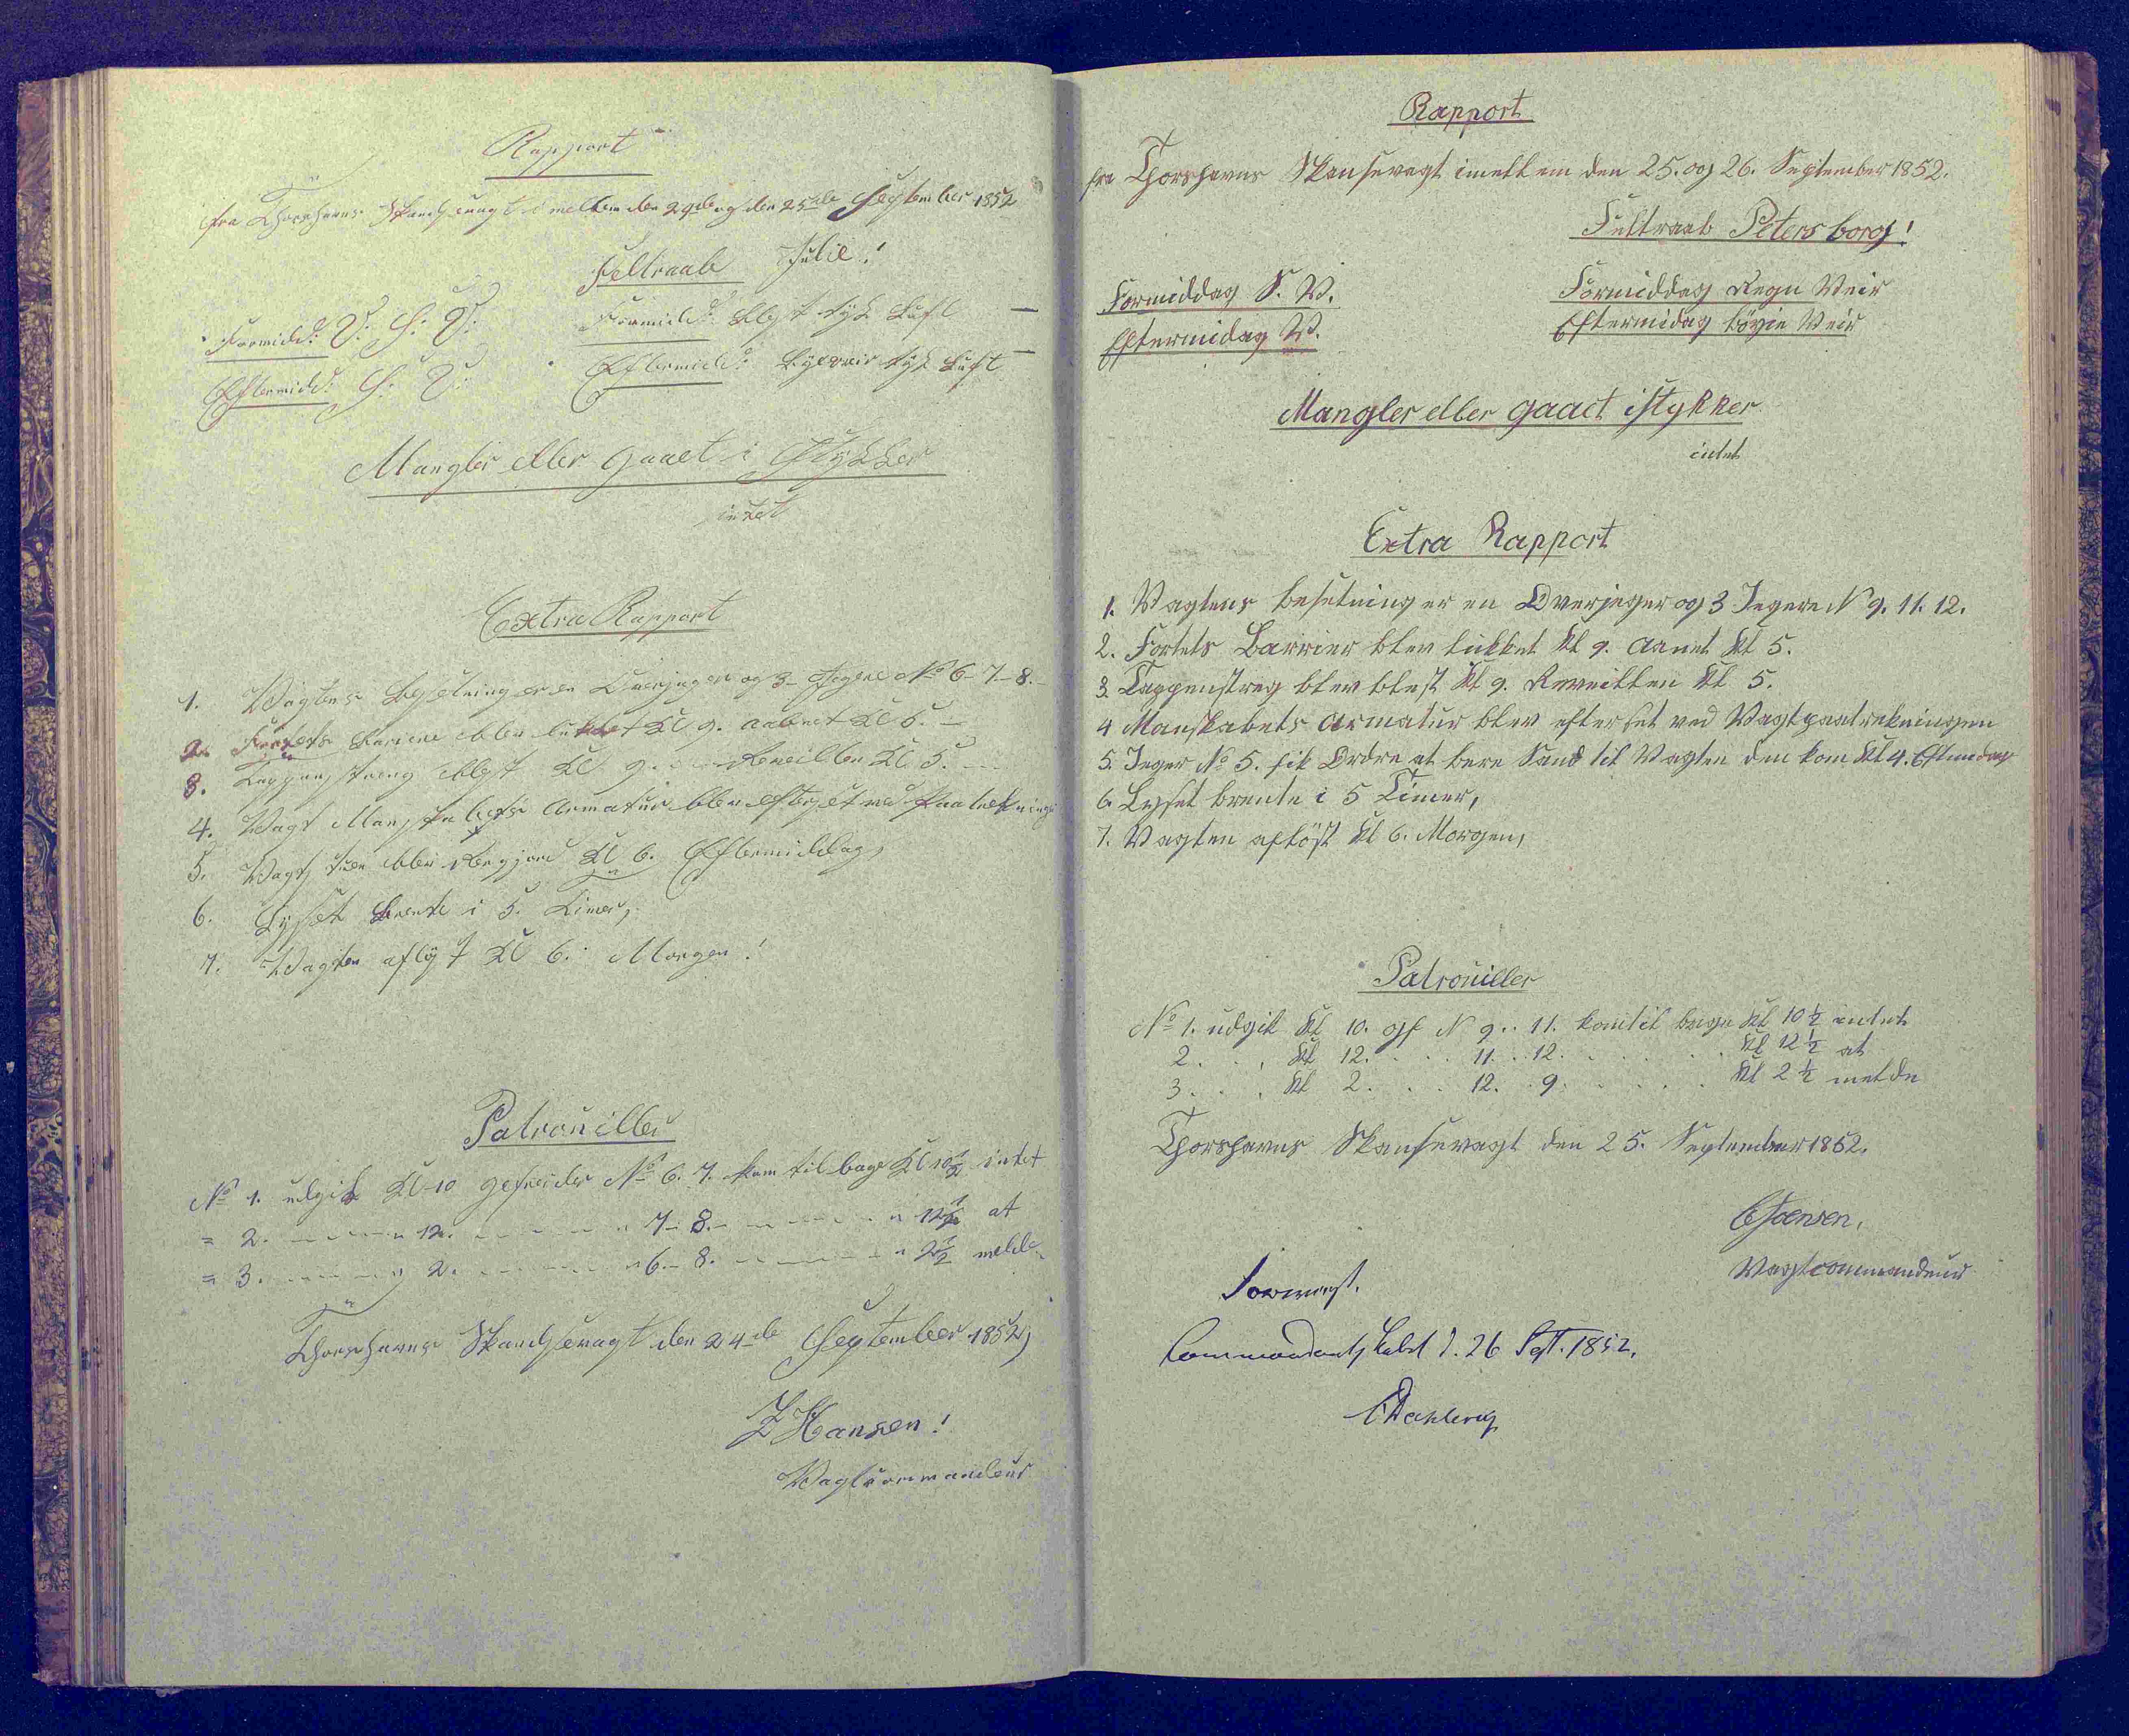 Rapport
fra Thorshavns Skandsevagt imellem den 24de og den 25de September 1852
Feltraab Julie!
Formidd: V: S: V: Formidd: Blest tyk Luft —
Eftermidd: S: V: Eftermidd: tyk Luft —
Mangler eller gaaet i Stykker
intet
Extra Rapport
1. Vagtens Besetning er en Overjeger og 3 Jegere No 6-7-8.
2. Fortets Bariere blev lukket Kl 9. aabnet Kl 5.
3. Tappenstreng blest Kl 9. Reveillen Kl 5.
4. Vagt Manskabets Armatur blev efterset ved Paatrekningen
5. Vagtstuen blev Rengjord Kl 6. Eftermiddag,
6. Lyset brente i 5. Timer,
7. Vagten afløst Kl 6. Morgen!
Patrouiller
No 1. udgik Kl 10 gefreider No 6. 7. kom tilbage Kl 10½ intet
= 2. " 12. " 7-8. " 12½ at
= 3. " 2. " 6-8. " 2½ melde
Thorshavns Skandsevagt den 24de September 1852,
Z Hansen!
Vagtcommandeur
Rapport
fra Thorshavns Skansevagt imellem den 25. og 26. September 1852.
Feltraab Petersborg!
Formiddag S. W. Formiddag Regn Veir
Eftermidag W. Eftermidag böyie Veir
Mangler eller gaaet istykker
intet
Extra Rapport
1. Vagtens besetning er en Overjeger og 3 Jegere N 9. 11. 12.
2. Fortets Barrier blev lukket Kl 9. aanet Kl 5.
3. Tappenstreg blev blest Kl 9. Reveillen Kl 5.
4 Manskabets Armatur blev efterset ved Vagtpaatrekningen
5. Jeger No 5. fik Ordre at bere Sand til Vagten den kom Kl 4. Eftmdag
6. Lyset brente i 5 Timer,
7. Vagten aflöst Kl 6. Morgen,
Patrouiller
No 1. udgik Kl 10. gf N 9. . 11. kom til bage Kl 10½ intet
2. . , Kl 12. . . . 11. . 12. . . . . . . Kl 12½ at
3. . , Kl 2. . . . 12. . 9. . . . . . Kl 2½ melde
Thorshavns Skansevagt den 25. September 1852.
Joensen,
Vagtcommandeur
Forevist.
Commandantskabet d. 26 Sept. 1852.
CDahlerup